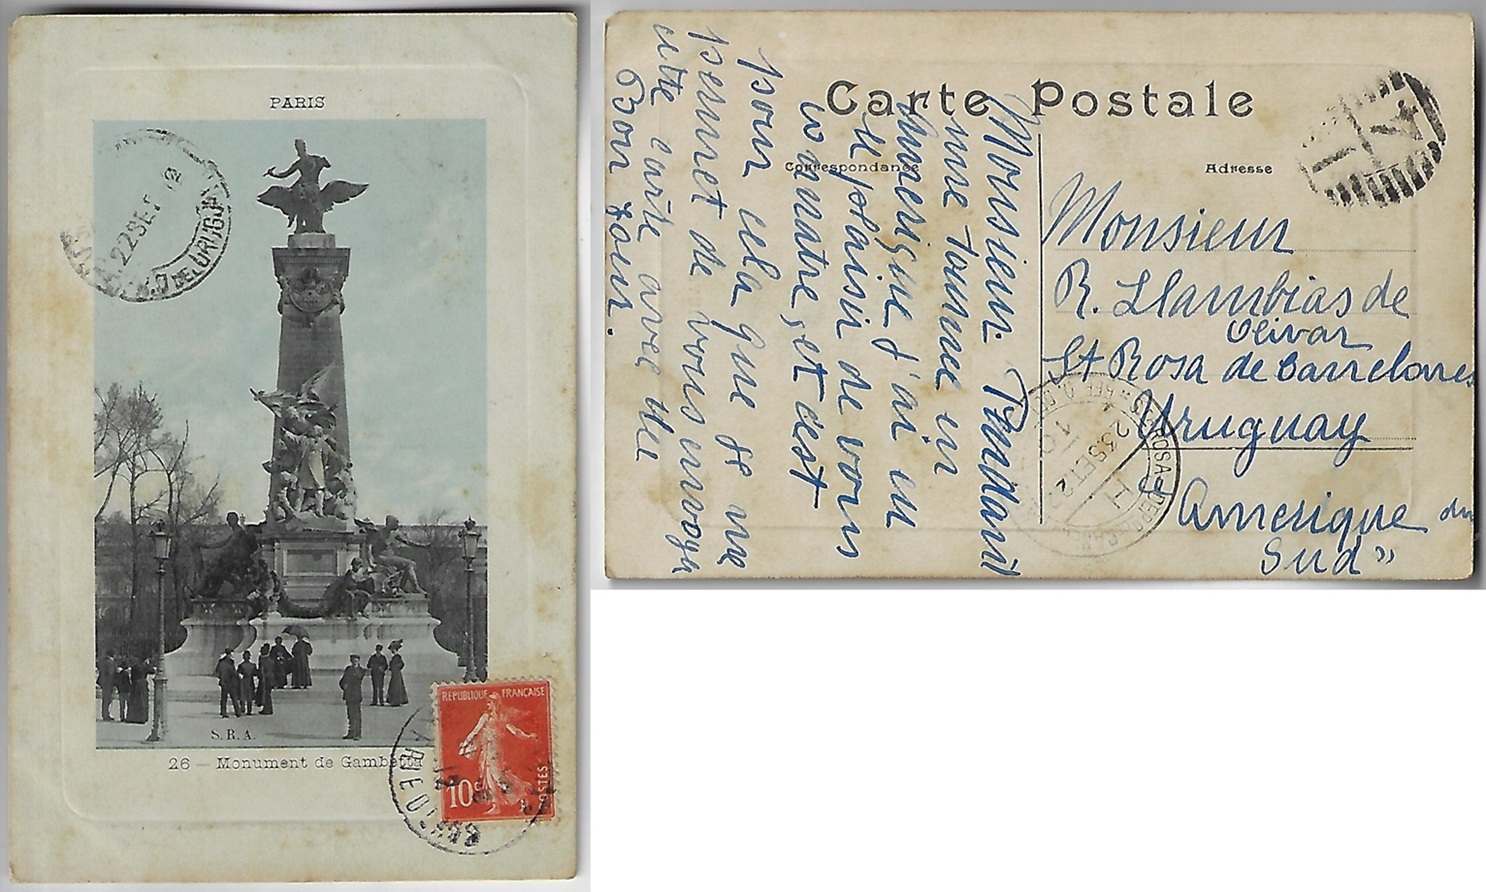 PARIS
22 SET 12
DEL URUGUAY
S.R.A.
26 — Monument de Gambetta
REPUBLIQUE FRANÇAISE
10c
POSTES
Carte Postale
Correspondance
Adresse
Monsieur. Pendant
une Tournée en
Amerique j'ai eu
le plaisir de vous
connaitre, et c'est
pour cela que je me
permet de vous envoyer
cette carte avec mes
Bon jour.
Monsieur
R. Llambias de
Olivar
St Rosa de Canelones
Uruguay
Amerique du
Sud"
23 SET 12
H